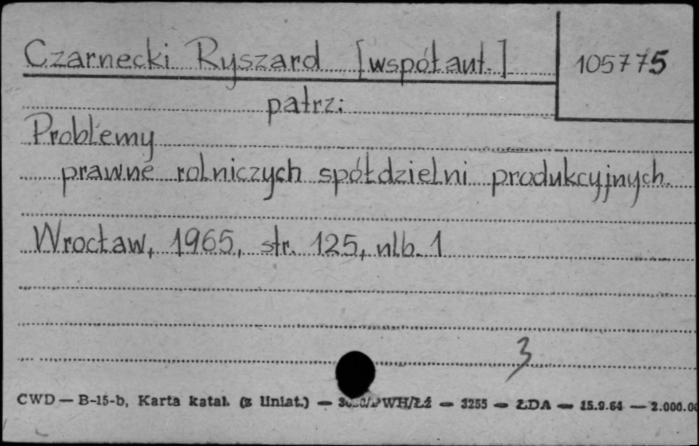 Czarnecki Ryszard [współaut.] 105775
patrz:
Problemy
prawne rolniczych spółdzielni produkcyjnych.
Wrocław, 1965, str. 125, nlb. 1
3
CWD — B-15-b, Karta katal. (z liniat.) — — 3255 — ŁDA — 15.9.64 — 2.000.00